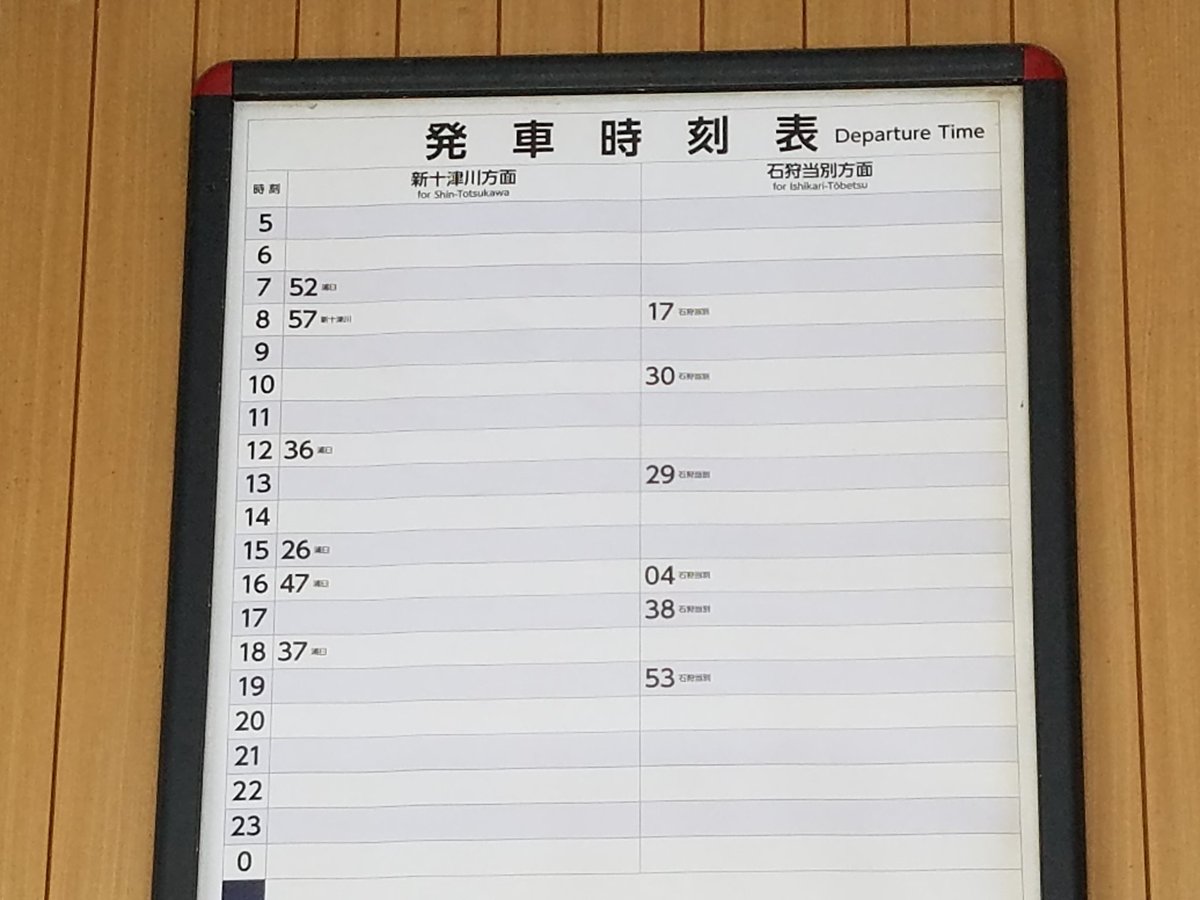 発車時刻表 Departure Time
時刻 新十津川方面 石狩当別方面
for Shin-Totsukawa for Ishikari-Tōbetsu
5
6
7 52 浦臼
8 57 新十津川 17 石狩当別
9
10 30 石狩当別
11
12 36 浦臼
13 29 石狩当別
14
15 26 浦臼
16 47 浦臼 04 石狩当別
17 38 石狩当別
18 37 浦臼
19 53 石狩当別
20
21
22
23
0